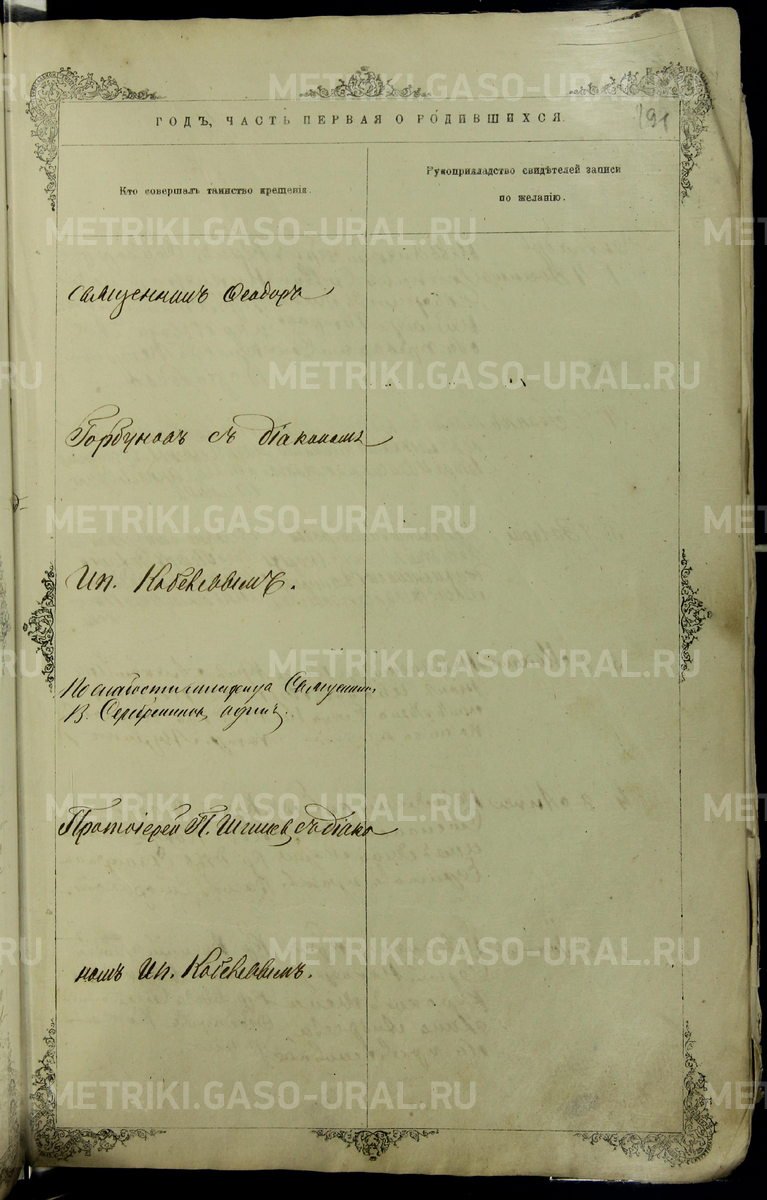 191
ГОДЪ, ЧАСТЬ ПЕРВАЯ О РОДИВШИХСЯ.
Кто совершалъ таинство крещенія.
Рукоприкладство свидѣтелей записи
по желанію.
Священникъ Ѳеодоръ
Горбуновъ съ діакономъ
Ип.
По слабости младенца Священник
В. Серебренников
Протоіерей П. Шишев съ діако
номъ Ип.
METRIKI.GASO-URAL.RU